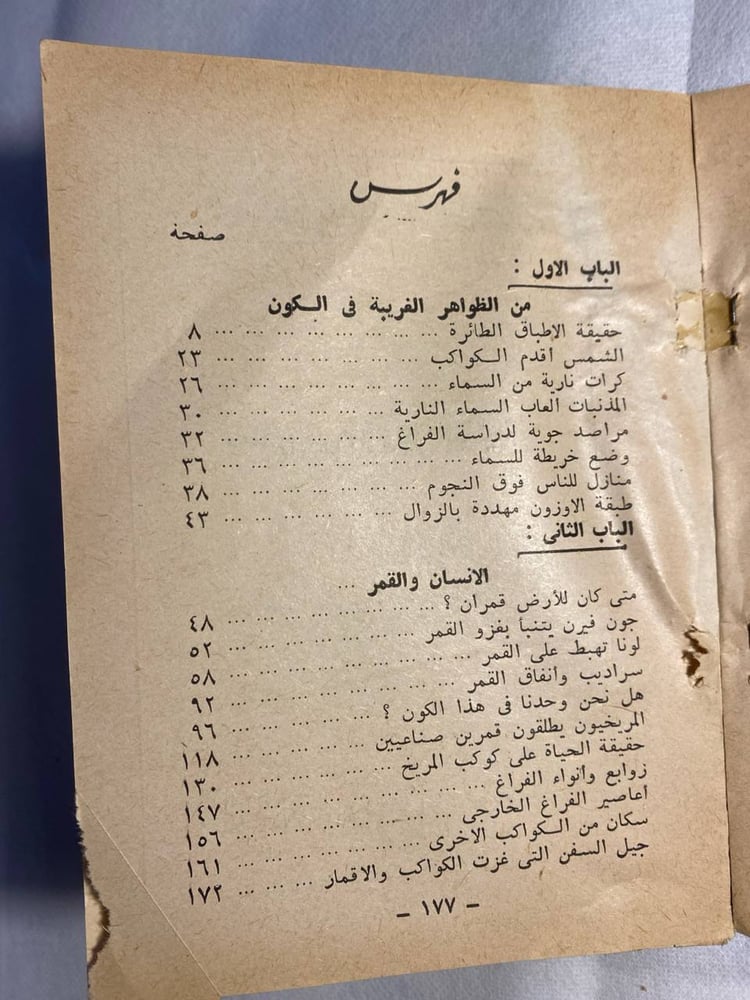 فهرس
صفحة
الباب الاول :
من الظواهر الغريبة فى الكون
حقيقة الاطباق الطائرة ... ... ... ... ... ... ... ... ٨
الشمس اقدم الكواكب ... ... ... ... ... ... ... ٢٣
كرات نارية من السماء ... ... ... ... ... ... ... ... ٢٦
المذنبات العاب السماء النارية ... ... ... ... ... ... ٣٠
مراصد جوية لدراسة الفراغ ... ... ... ... ... ... ٣٢
وضع خريطة للسماء ... ... ... ... ... ... ... ... ٣٦
منازل للناس فوق النجوم ... ... ... ... ... ... ... ٣٨
طبقة الاوزون مهددة بالزوال ... ... ... ... ... ... ٤٣
الباب الثانى :
الانسان والقمر ...
متى كان للأرض قمران ؟ ... ... ... ... ... ... ... ٤٨
جون فيرن يتنبأ بغزو القمر ... ... ... ... ... ... ٥٢
لونا تهبط على القمر ... ... ... ... ... ... ... ... ٥٨
سراديب وانفاق القمر ... ... ... ... ... ... ... ٩٢
هل نحن وحدنا فى هذا الكون ؟ ... ... ... ... ... ٩٦
المريخيون يطلقون قمرين صناعيين ... ... ... ... ... ١١٨
حقيقة الحياة على كوكب المريخ ... ... ... ... ... ١٣٠
زوابع وأنواء الفراغ ... ... ... ... ... ... ... ... ١٤٧
اعاصير الفراغ الخارجى ... ... ... ... ... ... ... ١٥٦
سكان من الكواكب الاخرى ... ... ... ... ... ... ١٦١
جيل السفن التى غزت الكواكب والاقمار ... ... ... ... ١٧٢
– ١٧٧ –